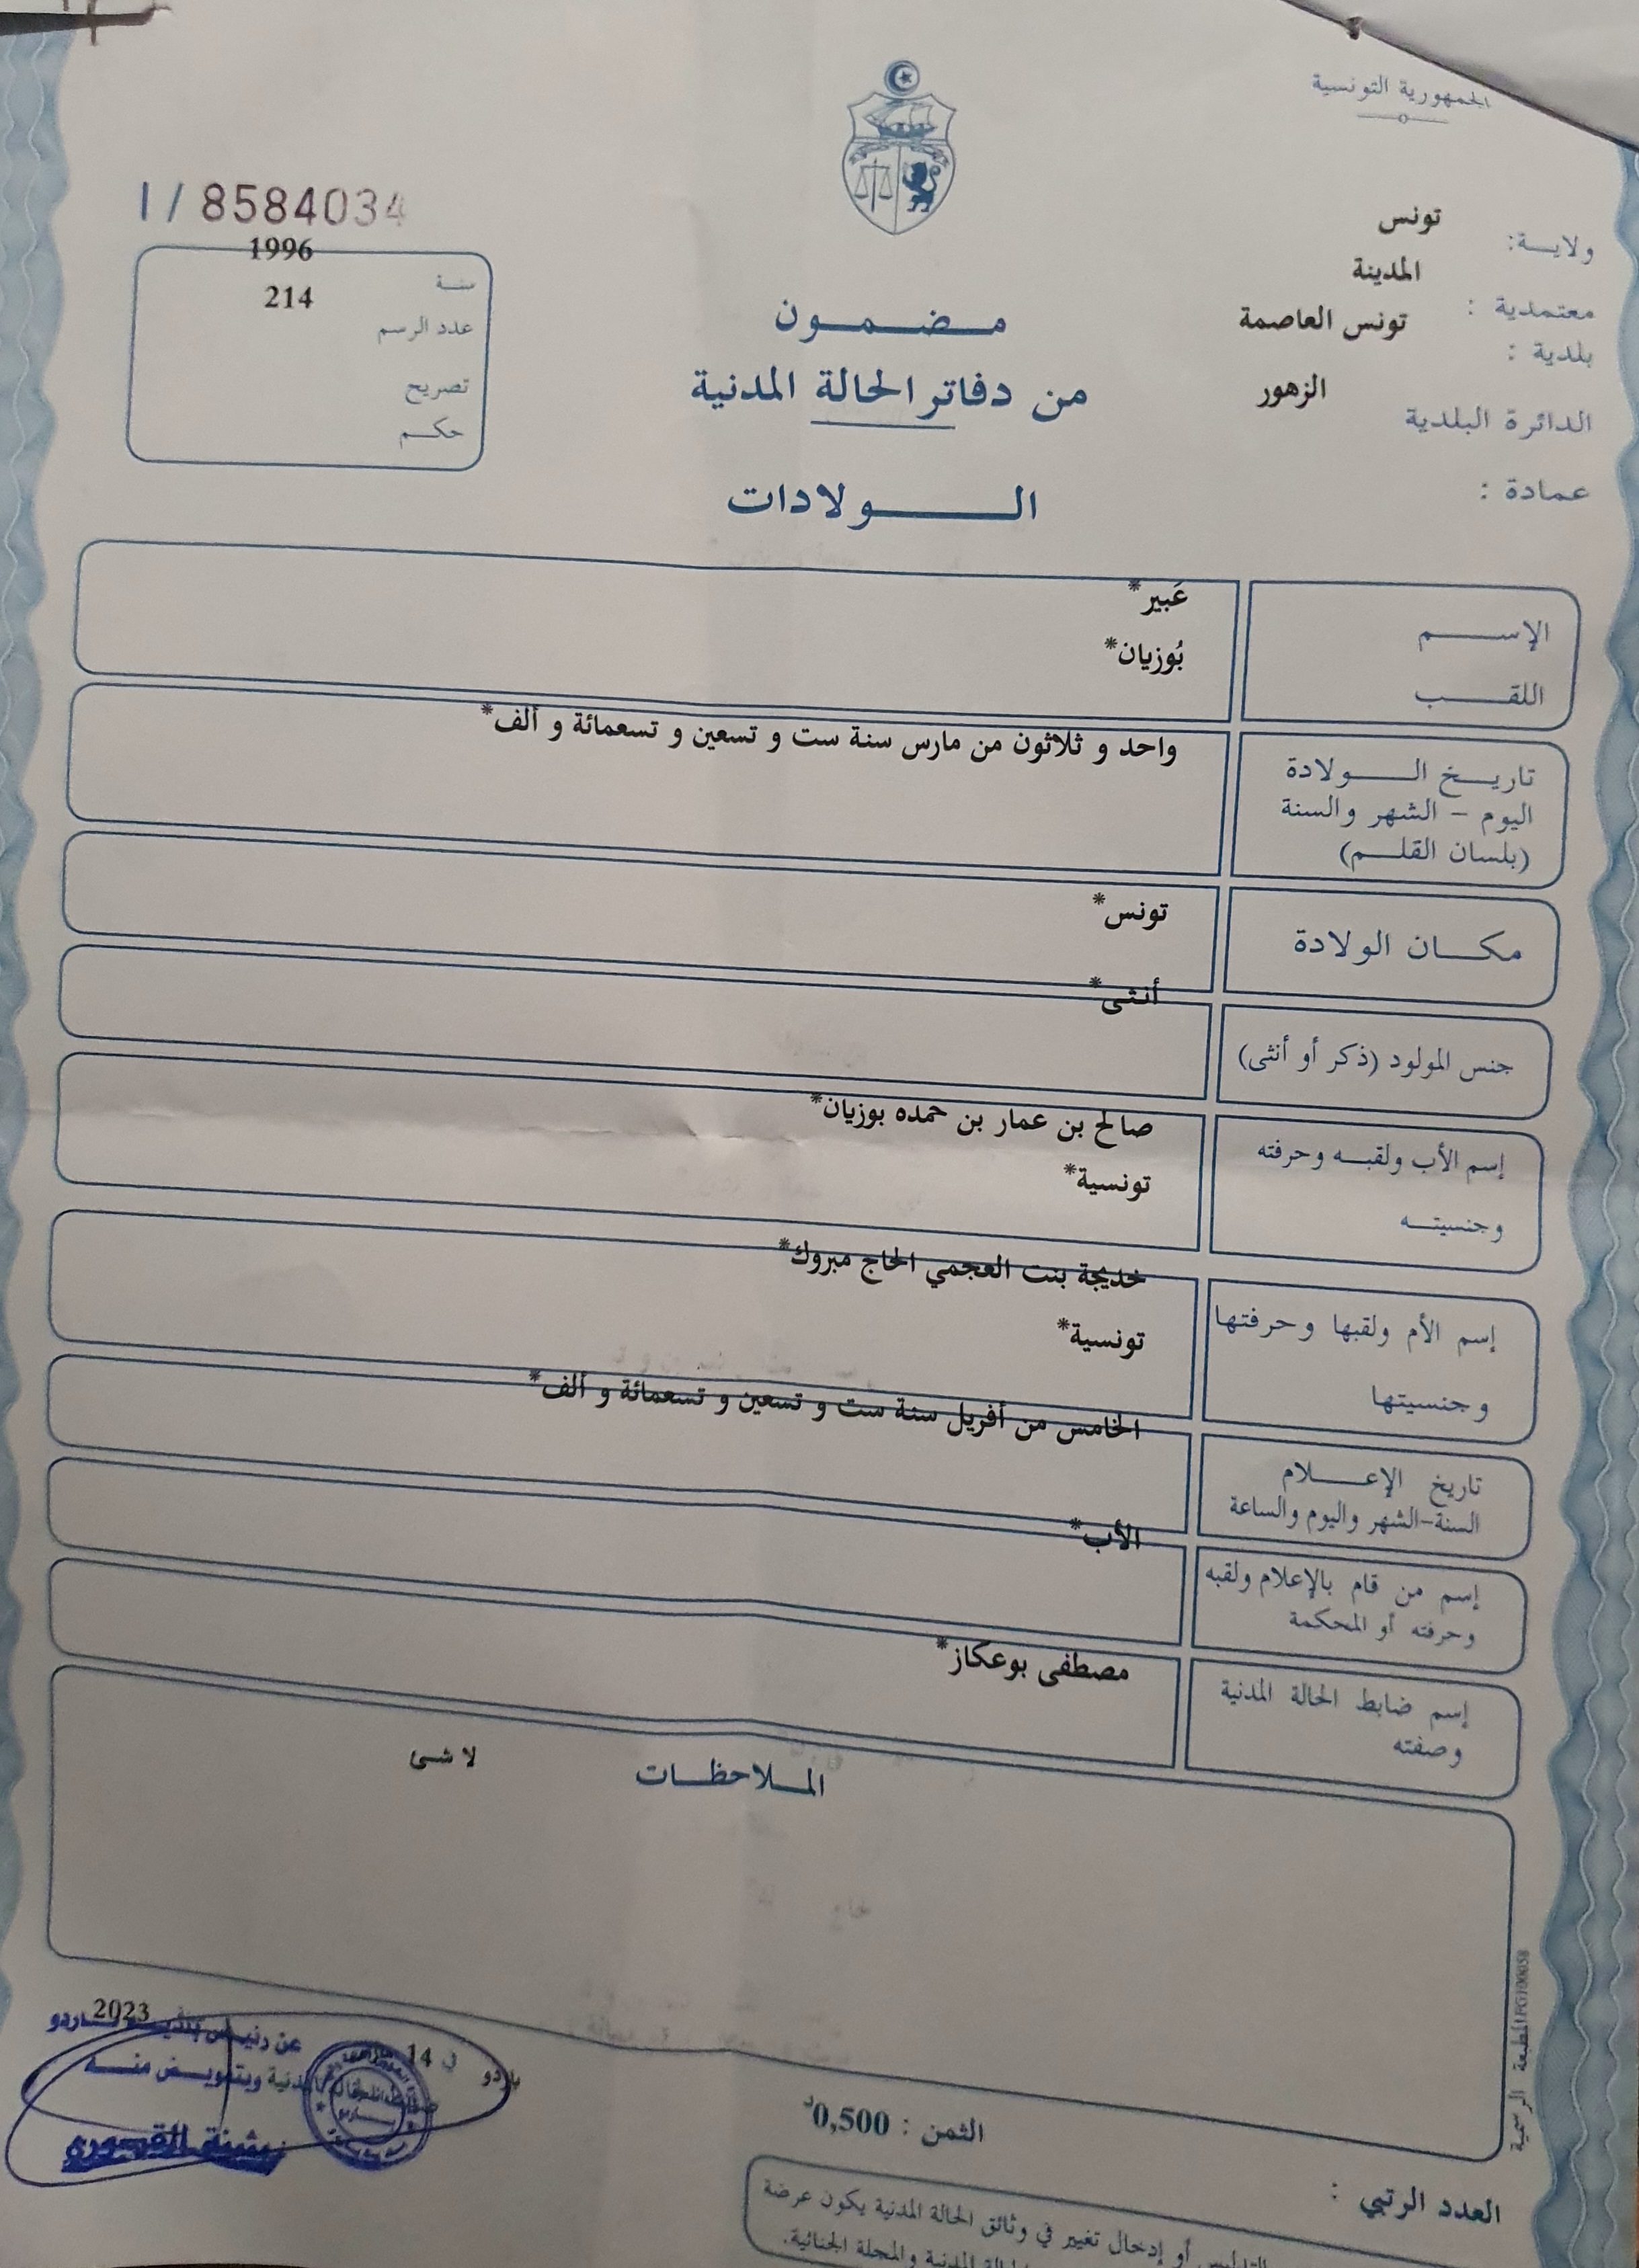 الجمهورية التونسية
ولايـــة: تونس
معتمدية : المدينة
بلدية : تونس العاصمة
الدائرة البلدية الزهور
عمادة :
I / 8584034
سنـة 1996
عدد الرسم 214
تصريح
حكـم
مـضـمـون
من دفاتر الحالة المدنية
الـــولادات
الإســـم عَبير*
اللقـــب بُوزيان*
تاريـخ الـــولادة واحد و ثلاثون من مارس سنة ست و تسعين و تسعمائة و ألف*
اليوم – الشهر والسنة
(بلسان القلـم)
مكــان الولادة تونس*
جنس المولود (ذكر أو أنثى) أنثى*
إسم الأب ولقبـه وحرفته صالح بن عمار بن حمده بوزيان*
وجنسيتـه تونسية*
إسم الأم ولقبها وحرفتها خديجة بنت العجمي الحاج مبروك*
وجنسيتها تونسية*
تاريخ الإعـــلام الخامس من أفريل سنة ست و تسعين و تسعمائة و ألف*
السنة-الشهر واليوم والساعة
إسم من قام بالإعلام ولقبه الأب*
وحرفته أو المحكمة
إسم ضابط الحالة المدنية مصطفى بوعكاز*
وصفته
المـلاحظـات لا شئ
باردو في 14 2023
عن رئيـس بلديـــة بـــاردو
وبتفويـض منـــه
بثينة القصوري
الثمن : 0,500د
المطبعة الرسمية
العدد الرتبي :
أو إدخال تغيير في وثائق الحالة المدنية يكون عرضة
المدنية والمجلة الجنائية.